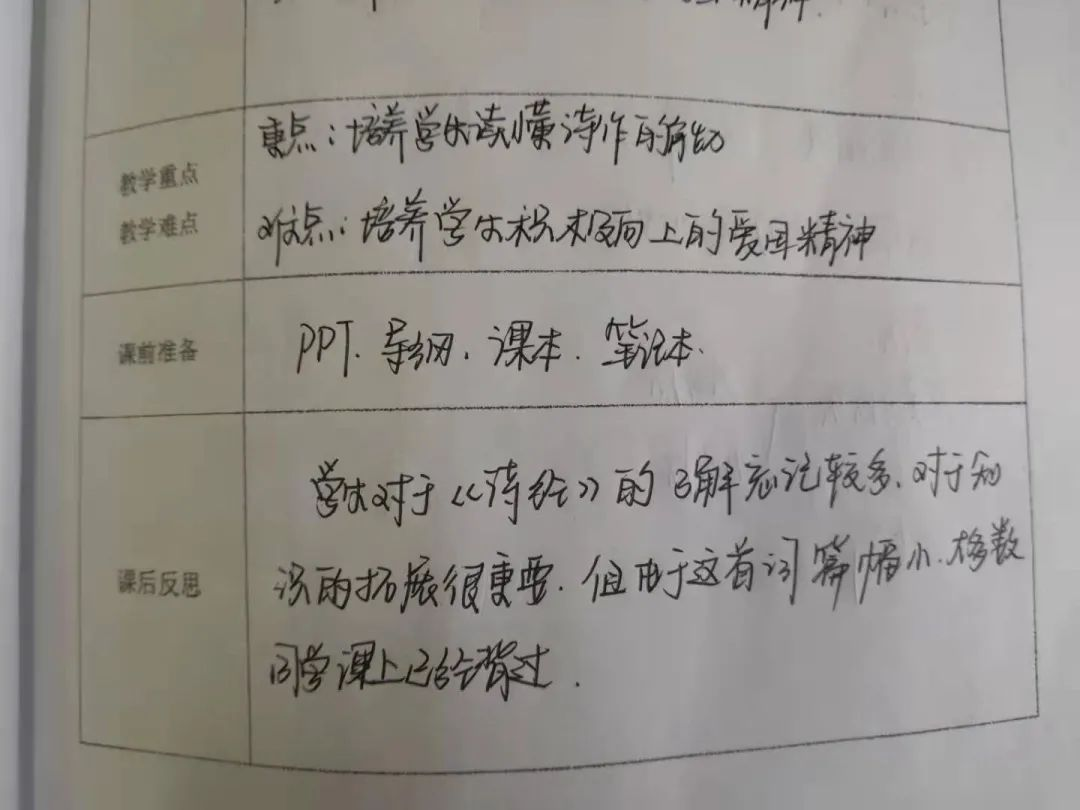 教学重点
教学难点
重点：培养学生读懂诗作的能力
难点：培养学生积极向上的爱国精神
课前准备
PPT、导纲、课本、笔记本.
课后反思
学生对于《诗经》的了解忘记较多、对于知
识的拓展很重要.但由于这首词篇幅小.多数
同学课上已经背过.